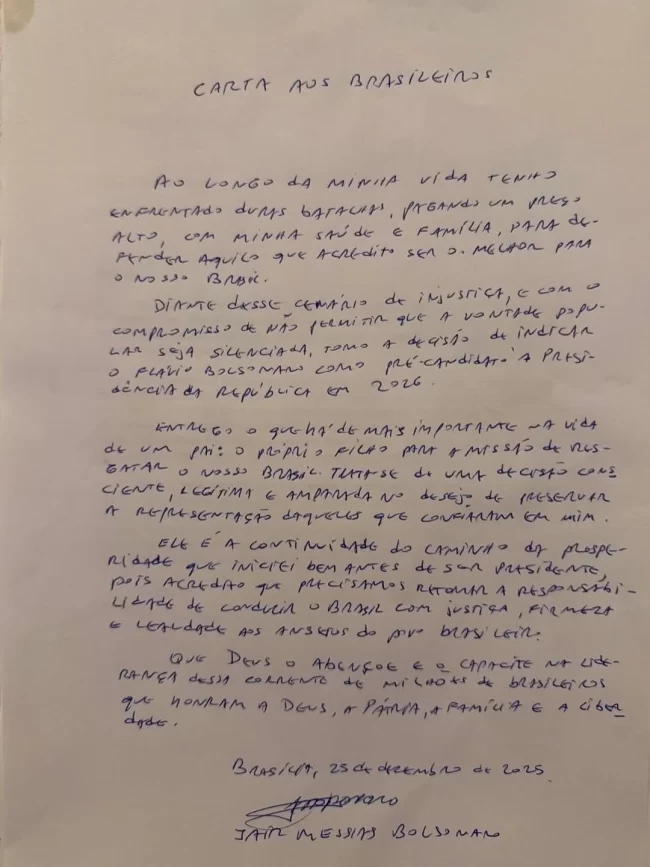 CARTA AOS BRASILEIROS
AO LONGO DA MINHA VIDA TENHO
ENFRENTADO DURAS BATALHAS, PAGANDO UM PREÇO
ALTO, COM MINHA SAÚDE E FAMÍLIA, PARA DE-
FENDER AQUILO QUE ACREDITO SER O MELHOR PARA
O NOSSO BRASIL.
DIANTE DESSE CENÁRIO DE INJUSTIÇA, E COM O
COMPROMISSO DE NÃO PERMITIR QUE A VONTADE POPU-
LAR SEJA SILENCIADA, TOMO A DECISÃO DE INDICAR
O FLÁVIO BOLSONARO COMO PRÉ-CANDIDATO À PRESI-
DÊNCIA DA REPÚBLICA EM 2026.
ENTREGO O QUE HÁ DE MAIS IMPORTANTE NA VIDA
DE UM PAI: O PRÓPRIO FILHO PARA A MISSÃO DE RES-
GATAR O NOSSO BRASIL. TRATA-SE DE UMA DECISÃO CONS
CIENTE, LEGÍTIMA E AMPARADA NO DESEJO DE PRESERVAR
A REPRESENTAÇÃO DAQUELES QUE CONFIARAM EM MIM.
ELE É A CONTINUIDADE DO CAMINHO DA PROSPE-
RIDADE QUE INICIEI BEM ANTES DE SER PRESIDENTE,
POIS ACREDITO QUE PRECISAMOS RETOMAR A RESPONSABI-
LIDADE DE CONDUZIR O BRASIL COM JUSTIÇA, FIRMEZA
E LEALDADE AOS ANSEIOS DO POVO BRASILEIRO.
QUE DEUS O ABENÇOE E O CAPACITE NA LIDE-
RANÇA DESSA CORRENTE DE MILHÕES DE BRASILEIROS
QUE HONRAM A DEUS, A PÁTRIA, A FAMÍLIA E A LIBER
DADE.
BRASÍLIA, 25 DE DEZEMBRO DE 2025
JAIR MESSIAS BOLSONARO